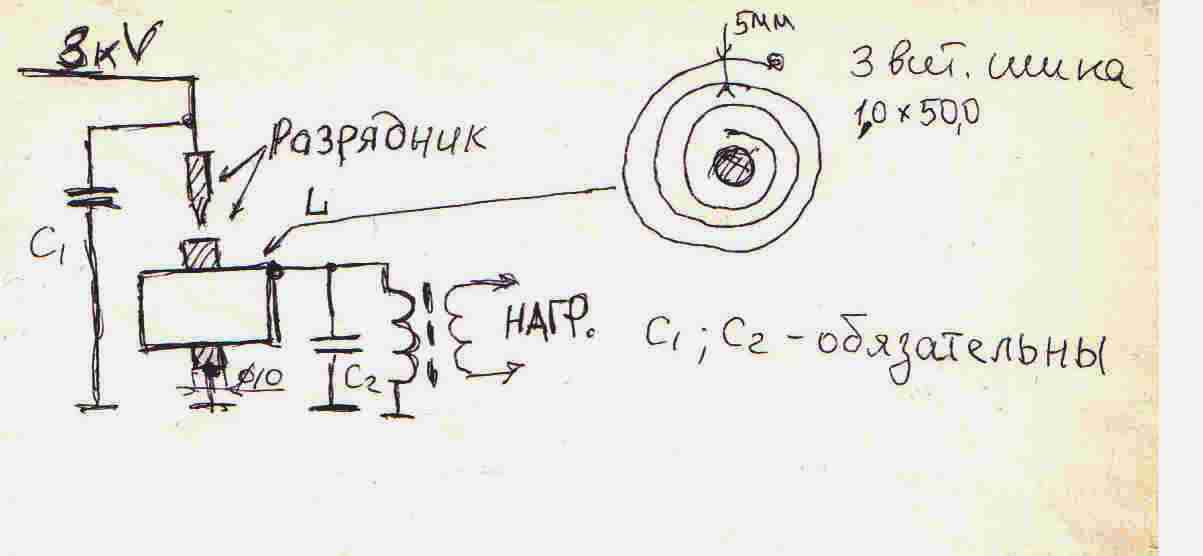 3кV
5мм
3 вит. шина
1,0 × 50,0
Разрядник
L
C₁
НАГР.
C₂
ø10
C₁ ; C₂ - обязательны